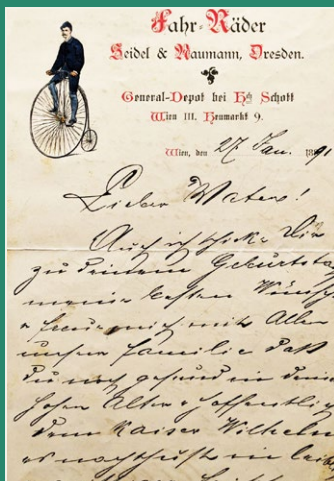 Fahr-Räder
Seidel & Naumann, Dresden.
General-Depot bei Hch Schott
Wien III. Heumarkt 9.
Wien, den 27 Jan. 1891
Lieber Vater!
Auch ich schicke Dir
zu Deinem Geburtstag
meine besten Wünsche
freue mich mit Allen
unserer Familie daß
Du noch gesund in Deinem
hohen Alter & hoffentlich
dem Kaiser Wilhelm
es